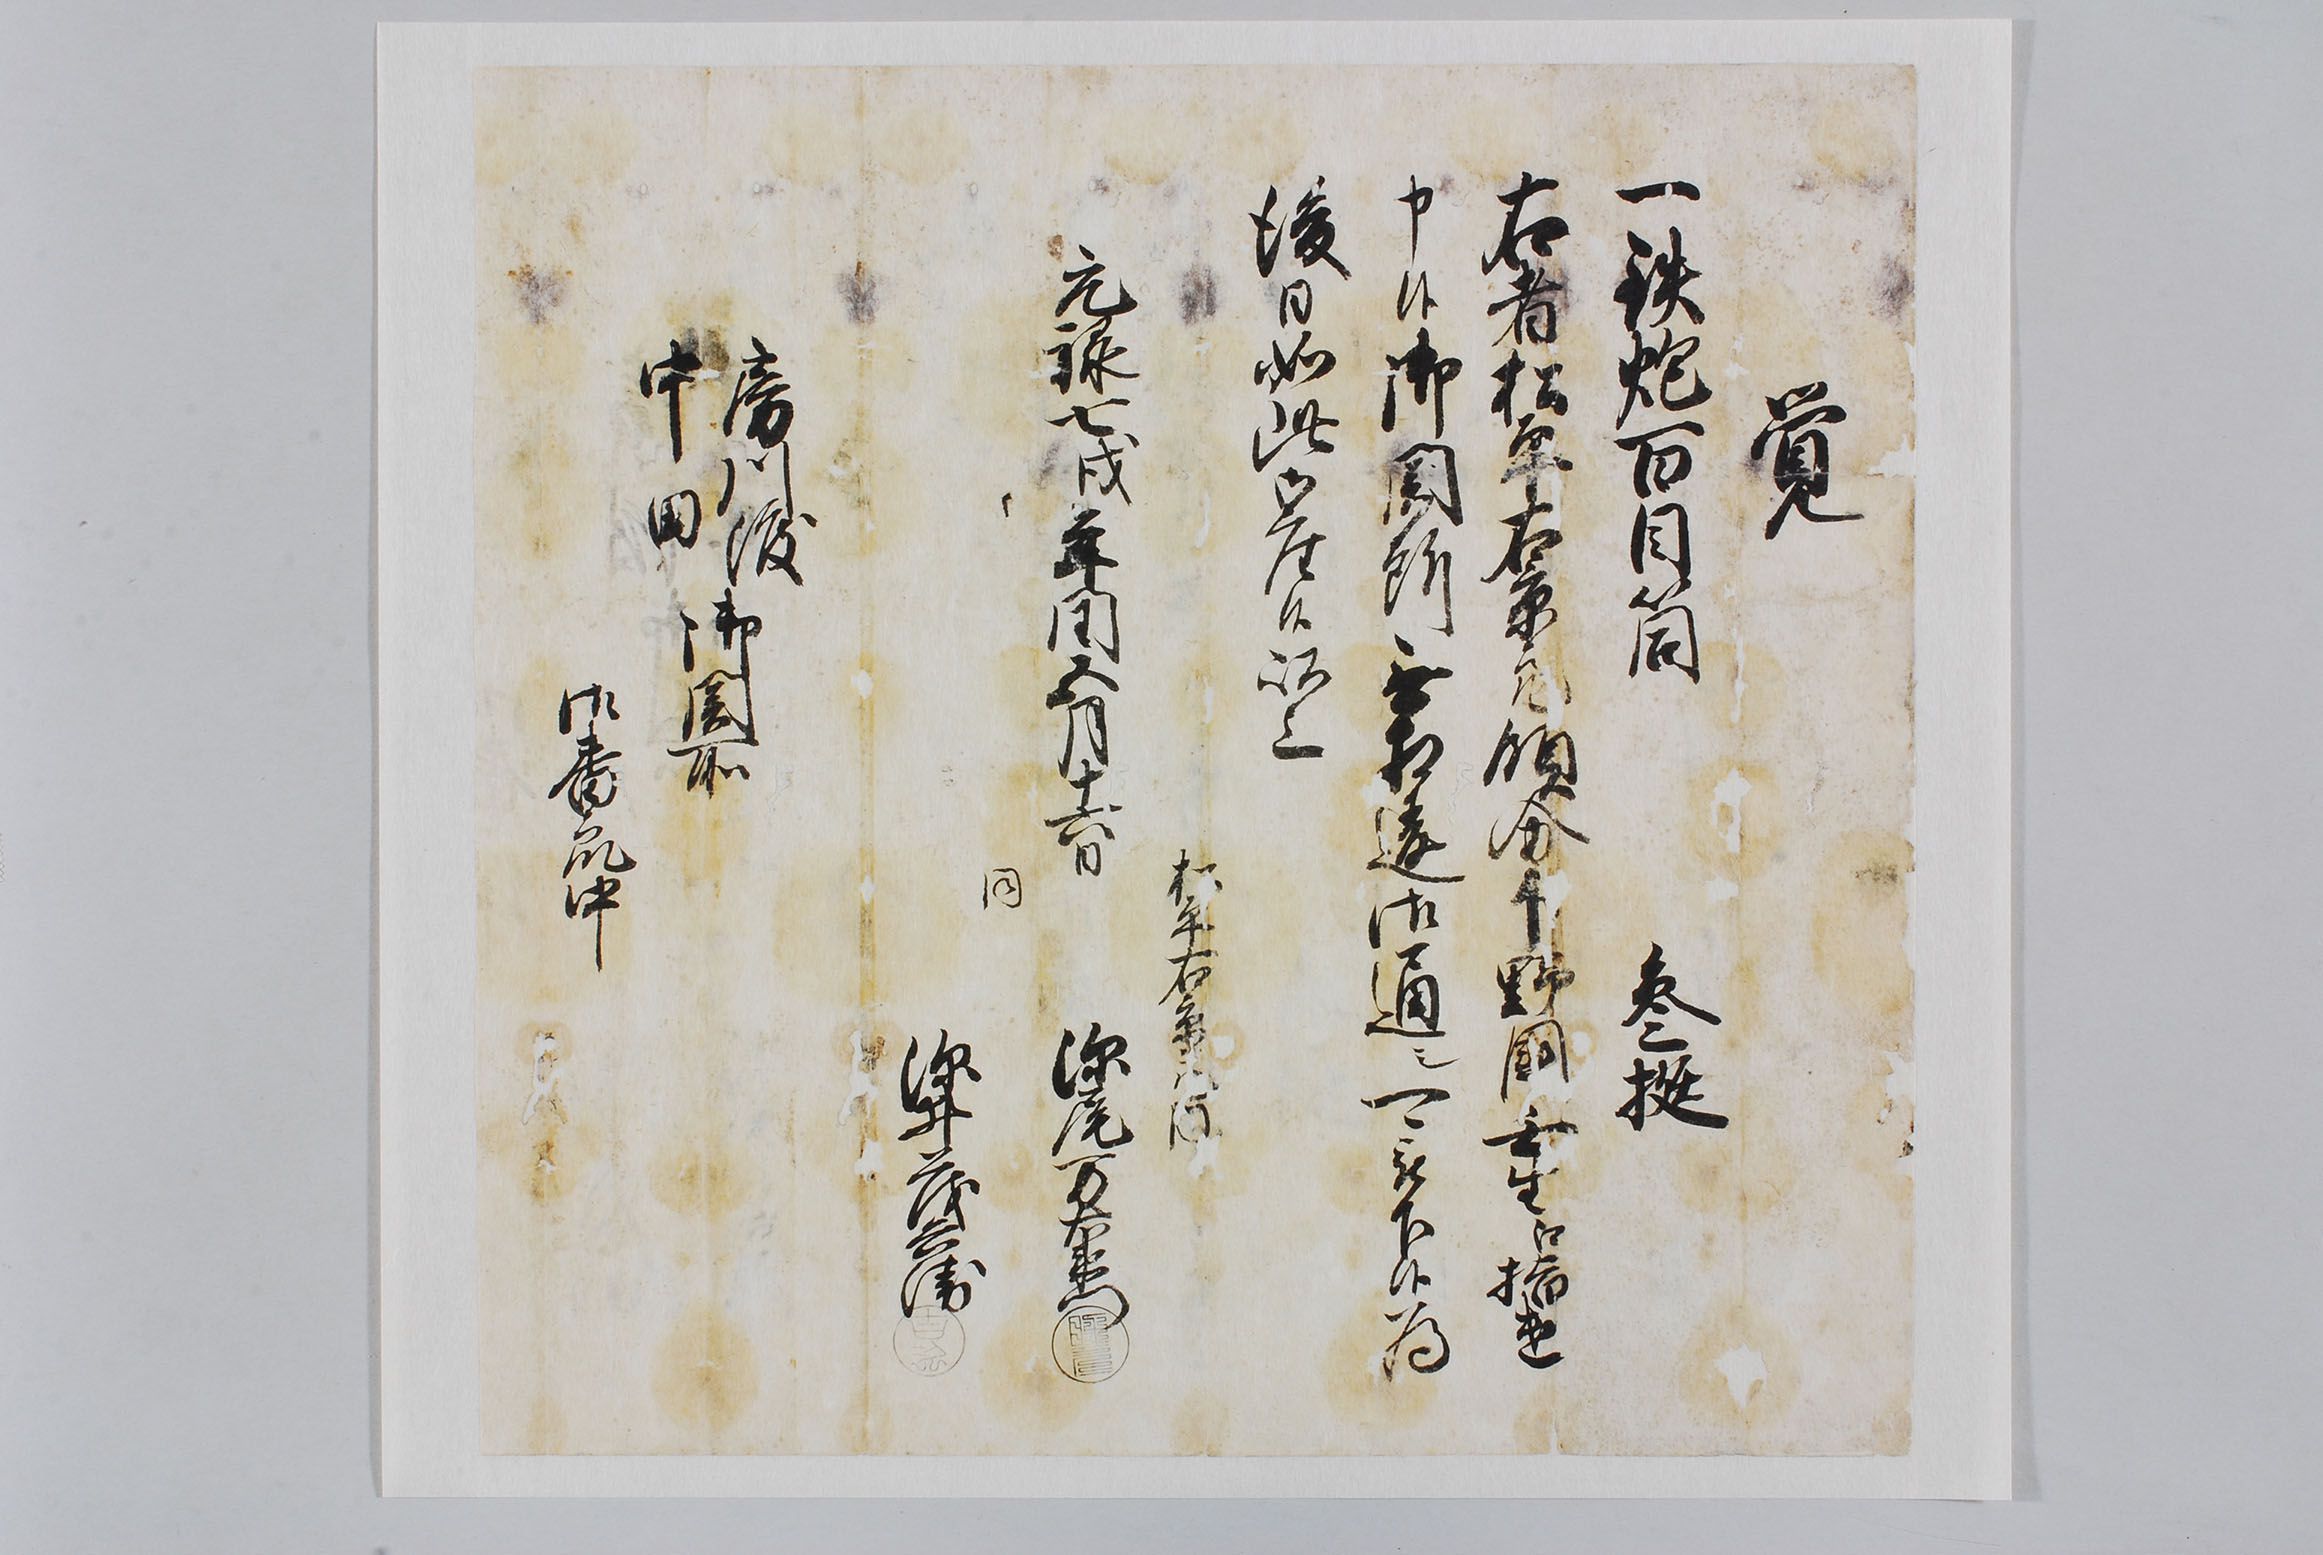 覚
一鉄炮百目筒　参挺
右者松平右京亮領分下野国壬生江指遣
申候御関所無相違御通シ可被下候為
後日如此御座候以上
松平右京亮内
元禄七戌年閏五月十六日
深尾万右衛門
同
深井茂兵衛
房川渡
中田
御関所
御番衆中